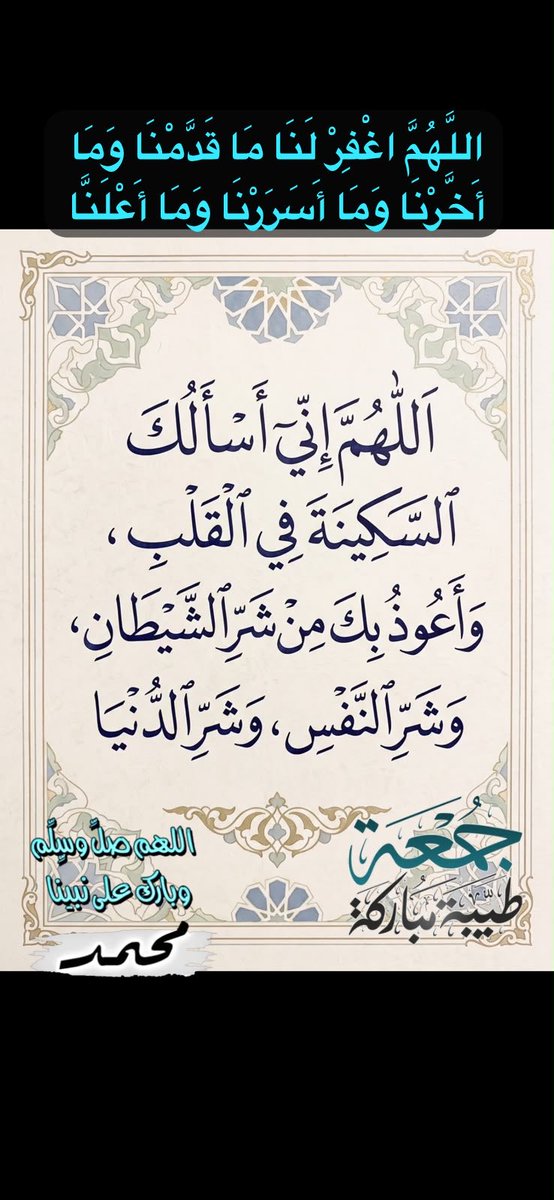 اللَّهُمَّ اغْفِرْ لَنَا مَا قَدَّمْنَا وَمَا
أَخَّرْنَا وَمَا أَسَرَرْنَا وَمَا أَعْلَنَّا
اَللّٰهُمَّ إِنِّيٓ أَسْأَلُكَ
ٱلسَّكِينَةَ فِي ٱلْقَلْبِ ،
وَأَعُوذُ بِكَ مِنْ شَرِّ ٱلشَّيْطَانِ،
وَشَرِّ ٱلنَّفْسِ، وَشَرِّ ٱلدُّنْيَا
جُمْعَة
طَيِّبَة مُبَارَكَة
اللهم صلِّ وسلِّم
وبارك على نبينا
محمد